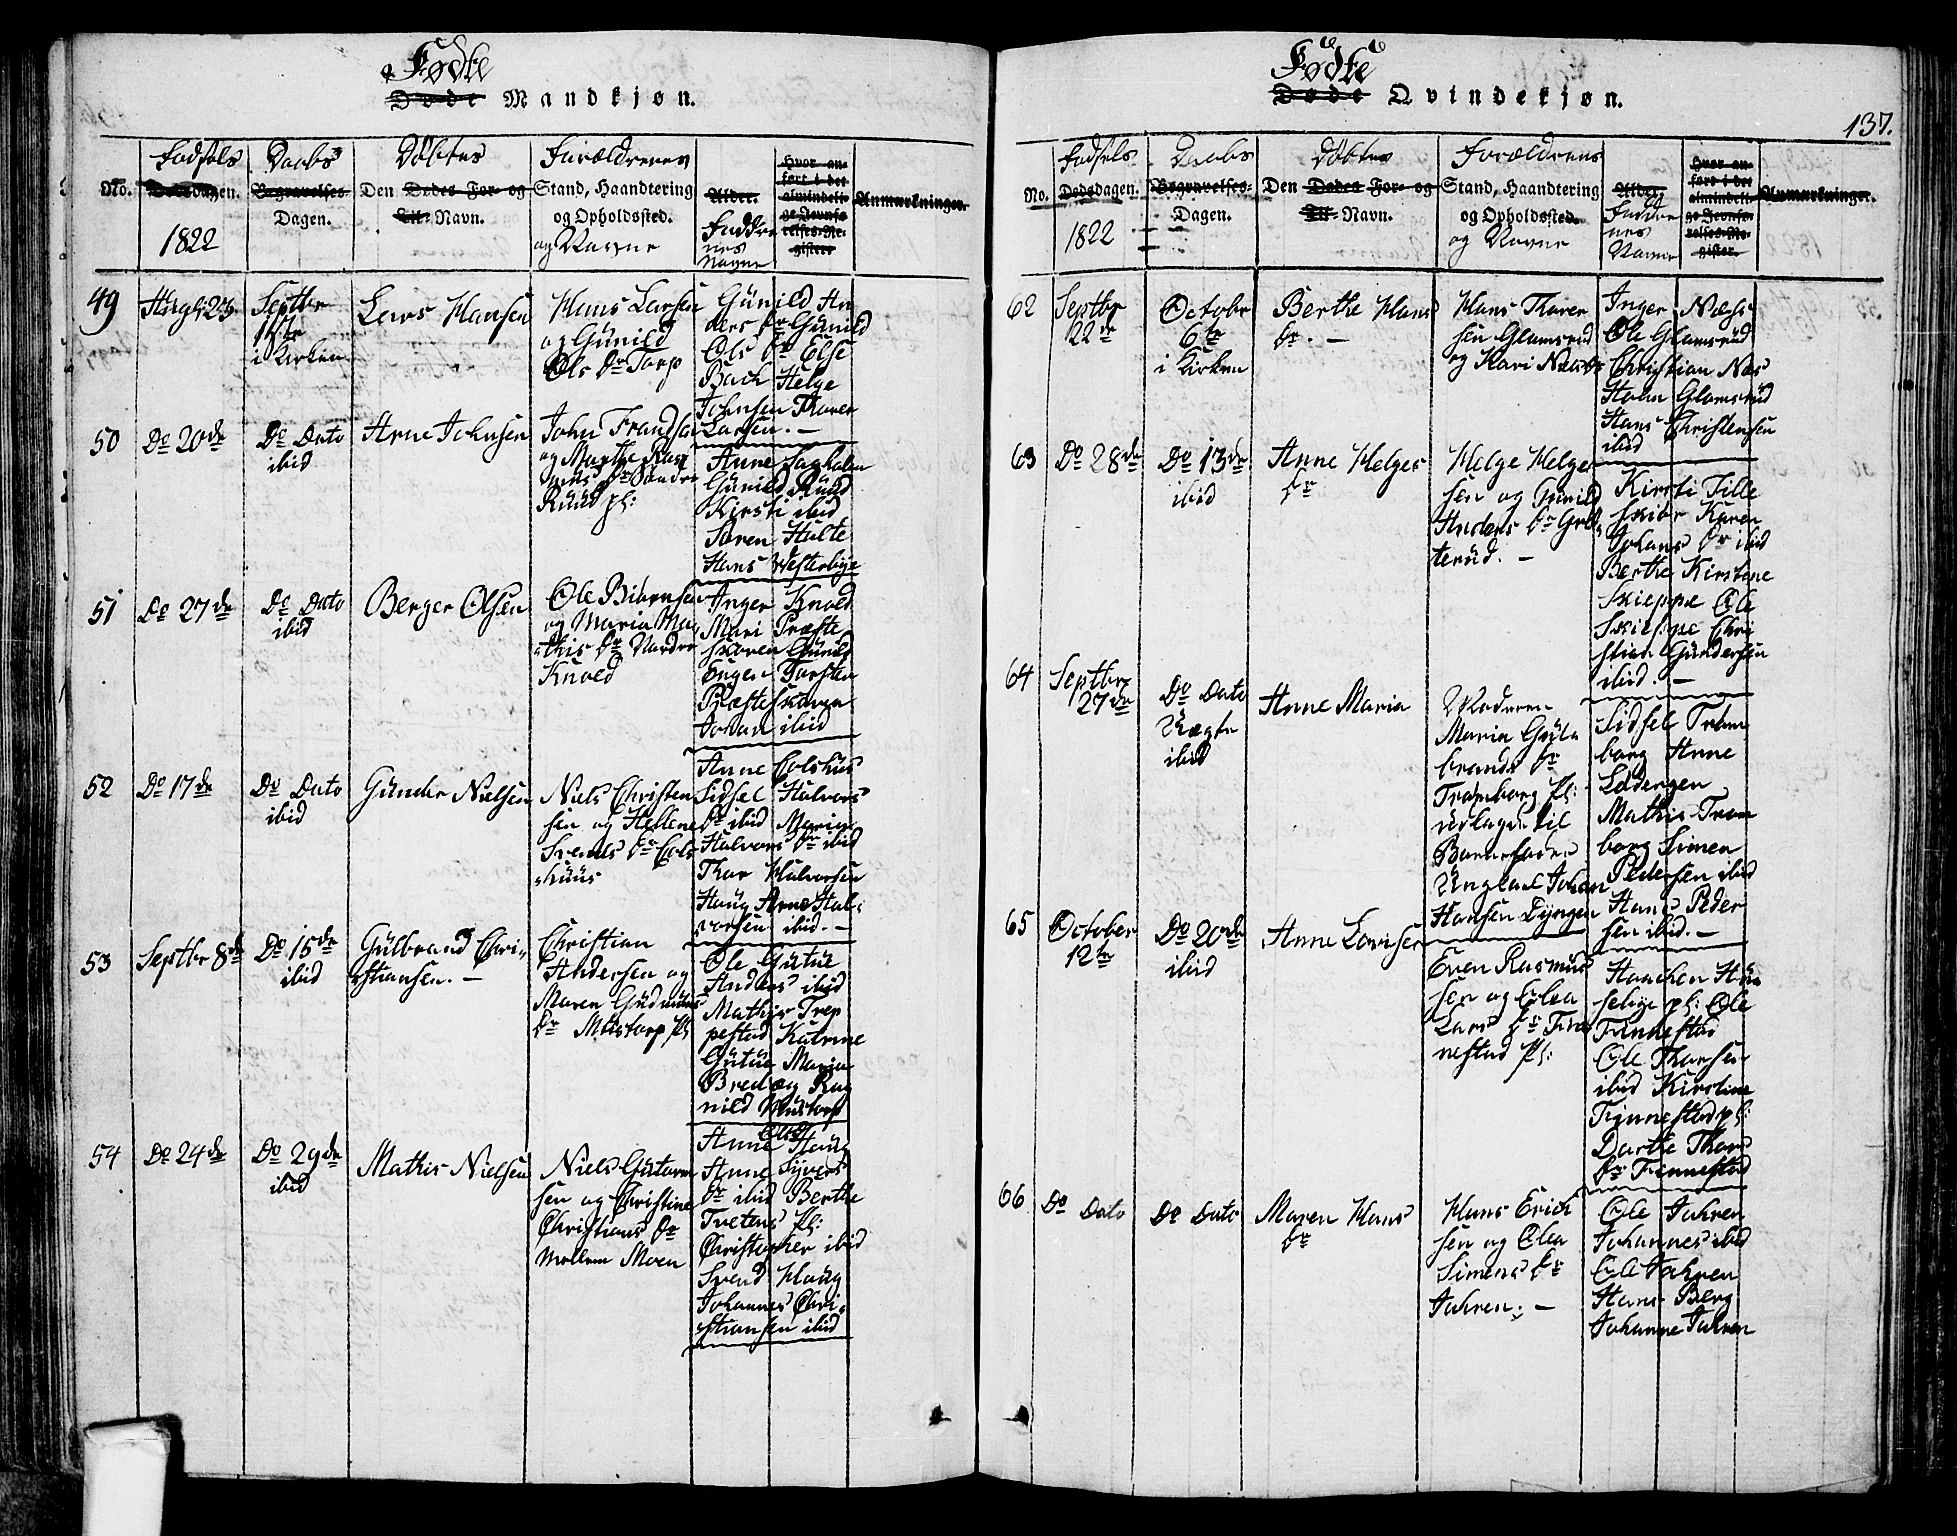 Fødte
Døde Mandkjøn.
No.
Fødsels
Dødsdagen.
1822
Daabs
Begravelses-
Dagen.
Døbtes
Den Dødes For- og
Til- Navn.
Forældrenes
Stand, Haandtering
og Opholdssted.
og Navne
Alder.
Faddre
nes
Navne
Hvor an-
ført i det
almindeli-
ge Jevnfø-
relses-Re-
gister
Anmærkninger.
49
Aug: 23
Septbr
i Kirken
Lars Hansen
Hans Larsen
og Gúnild
Ols Dr Torp
Gúnild An
ders Dr Gúnild
Ols Dr Else
Bach Helge
Johnsen Thorer
Larsen. —
50
Do 20de
Do Dato
ibid
Arne Johnsen
John Frandsen
og Marthe
Rúúd pl:
Anne
Gúnild Rúúd
Kirsti ibid
Søren Hulte
Hans Westerbye
51
Do 27de
Do Dato
ibid
Berger Olsen
Ole Biørnsen
og Maria Ma
this Dr Nordre
Knold
Inger Knold
Mari Præste
skoven Gúnild
Engen Torsten
Præsteskoven
Johan ibid
52
Do 17de
Do Dato
ibid
Gúnder Nielsen
Niels Christen
sen og Hellene
Svends Dr Cols
húús
Anne Colshus
Sidsel Halvors
Dr ibid Maria
Halvors Dr ibid
Thor Halvorsen
Haug Arne Hal-
vorsen ibid. —
53
Septbr 8de
Do 15de
ibid
Gúlbrand Chri-
stiansen. —
Christian
Andersen og
Maren Gúdmunds
Dr Mústorp pl
Ole Gútúe
Anders ibid
Mathis Trep
pestad Katrine
Gútúe Maria
Bredeg Rag
nild Mústorp
54
Do 24de
Do 29de
ibid
Mathis Nielsen
Niels Gústavs
sen og Christine
Christians Dr
Mellem Moen
Anne Haúg
Anne Syvers
Dr ibid Berthe
Tvetens pl:
Christopher ibid
Svend Haúg
Johannes Chri-
stiansen ibid
Fødte
Døde Qvindekjøn.
137.
No.
Fødsels
Dødsdagen.
1822
Daabs
Begravelses-
Dagen.
Døbtes
Den Dødes For- og
Til- Navn.
Forældrens
Stand, Haandtering
og Opholdssted.
og Navne
Alder.
Faddre
nes
Navne
Hvor an-
ført i det
almindeli-
ge Jevnfø-
relses-Re-
gister.
Anmærkninger.
62
Septbr
22de
Octobr
6te
i Kirken
Berthe Hans
Dr. —
Hans Thorer
sen Glamsrud
og Kari
Inger Næss
Ole Glamsrud
Christian Næs
John Glamsrúd
Hans Christensen
ibid
63
Do 28de
Do 13de
ibid
Anne Helges
Dr
Helge Helge
sen og Gúnild
Anders Dr Grøt
terúd. —
Kirsti Tille
skiør Karen
Johans Dr ibid
Berthe Kirstine
Skieppe Ole
Skieppe Chri
stian Gúndersen
ibid. —
64
Septbr
27de
Do Dato
Uægte
ibid
Anne Maria
Moderen
Maria Gúl
brands Dr
Tromborg pl:
udlagde til
Barnefader
Ungkarl Johan
Hansen Dÿngen
Sidsel Trom
borg Anne
Ladergen
Mathis Trom
borg Simen
Pedersen ibid
Hans Peder
sen ibid. —
65
October
12te
Do 20de
ibid
Anne
Even Rasmus
sen og Olea
Lars Dr Fin
nestad pl:
Ole
Finnestad
Ole Thorsen
ibid Kirstine
Finnestad pl:
Dorthe Thors
Dr Finnestad
66
Do Dato
Do Dato
Maren Hans
Dr
Hans Erich
sen og Olea
Simens Dr
Jahren. —
Ole Jahren
Johannes ibid
Ole Jahren
Hans Berg
Johanne Jahren